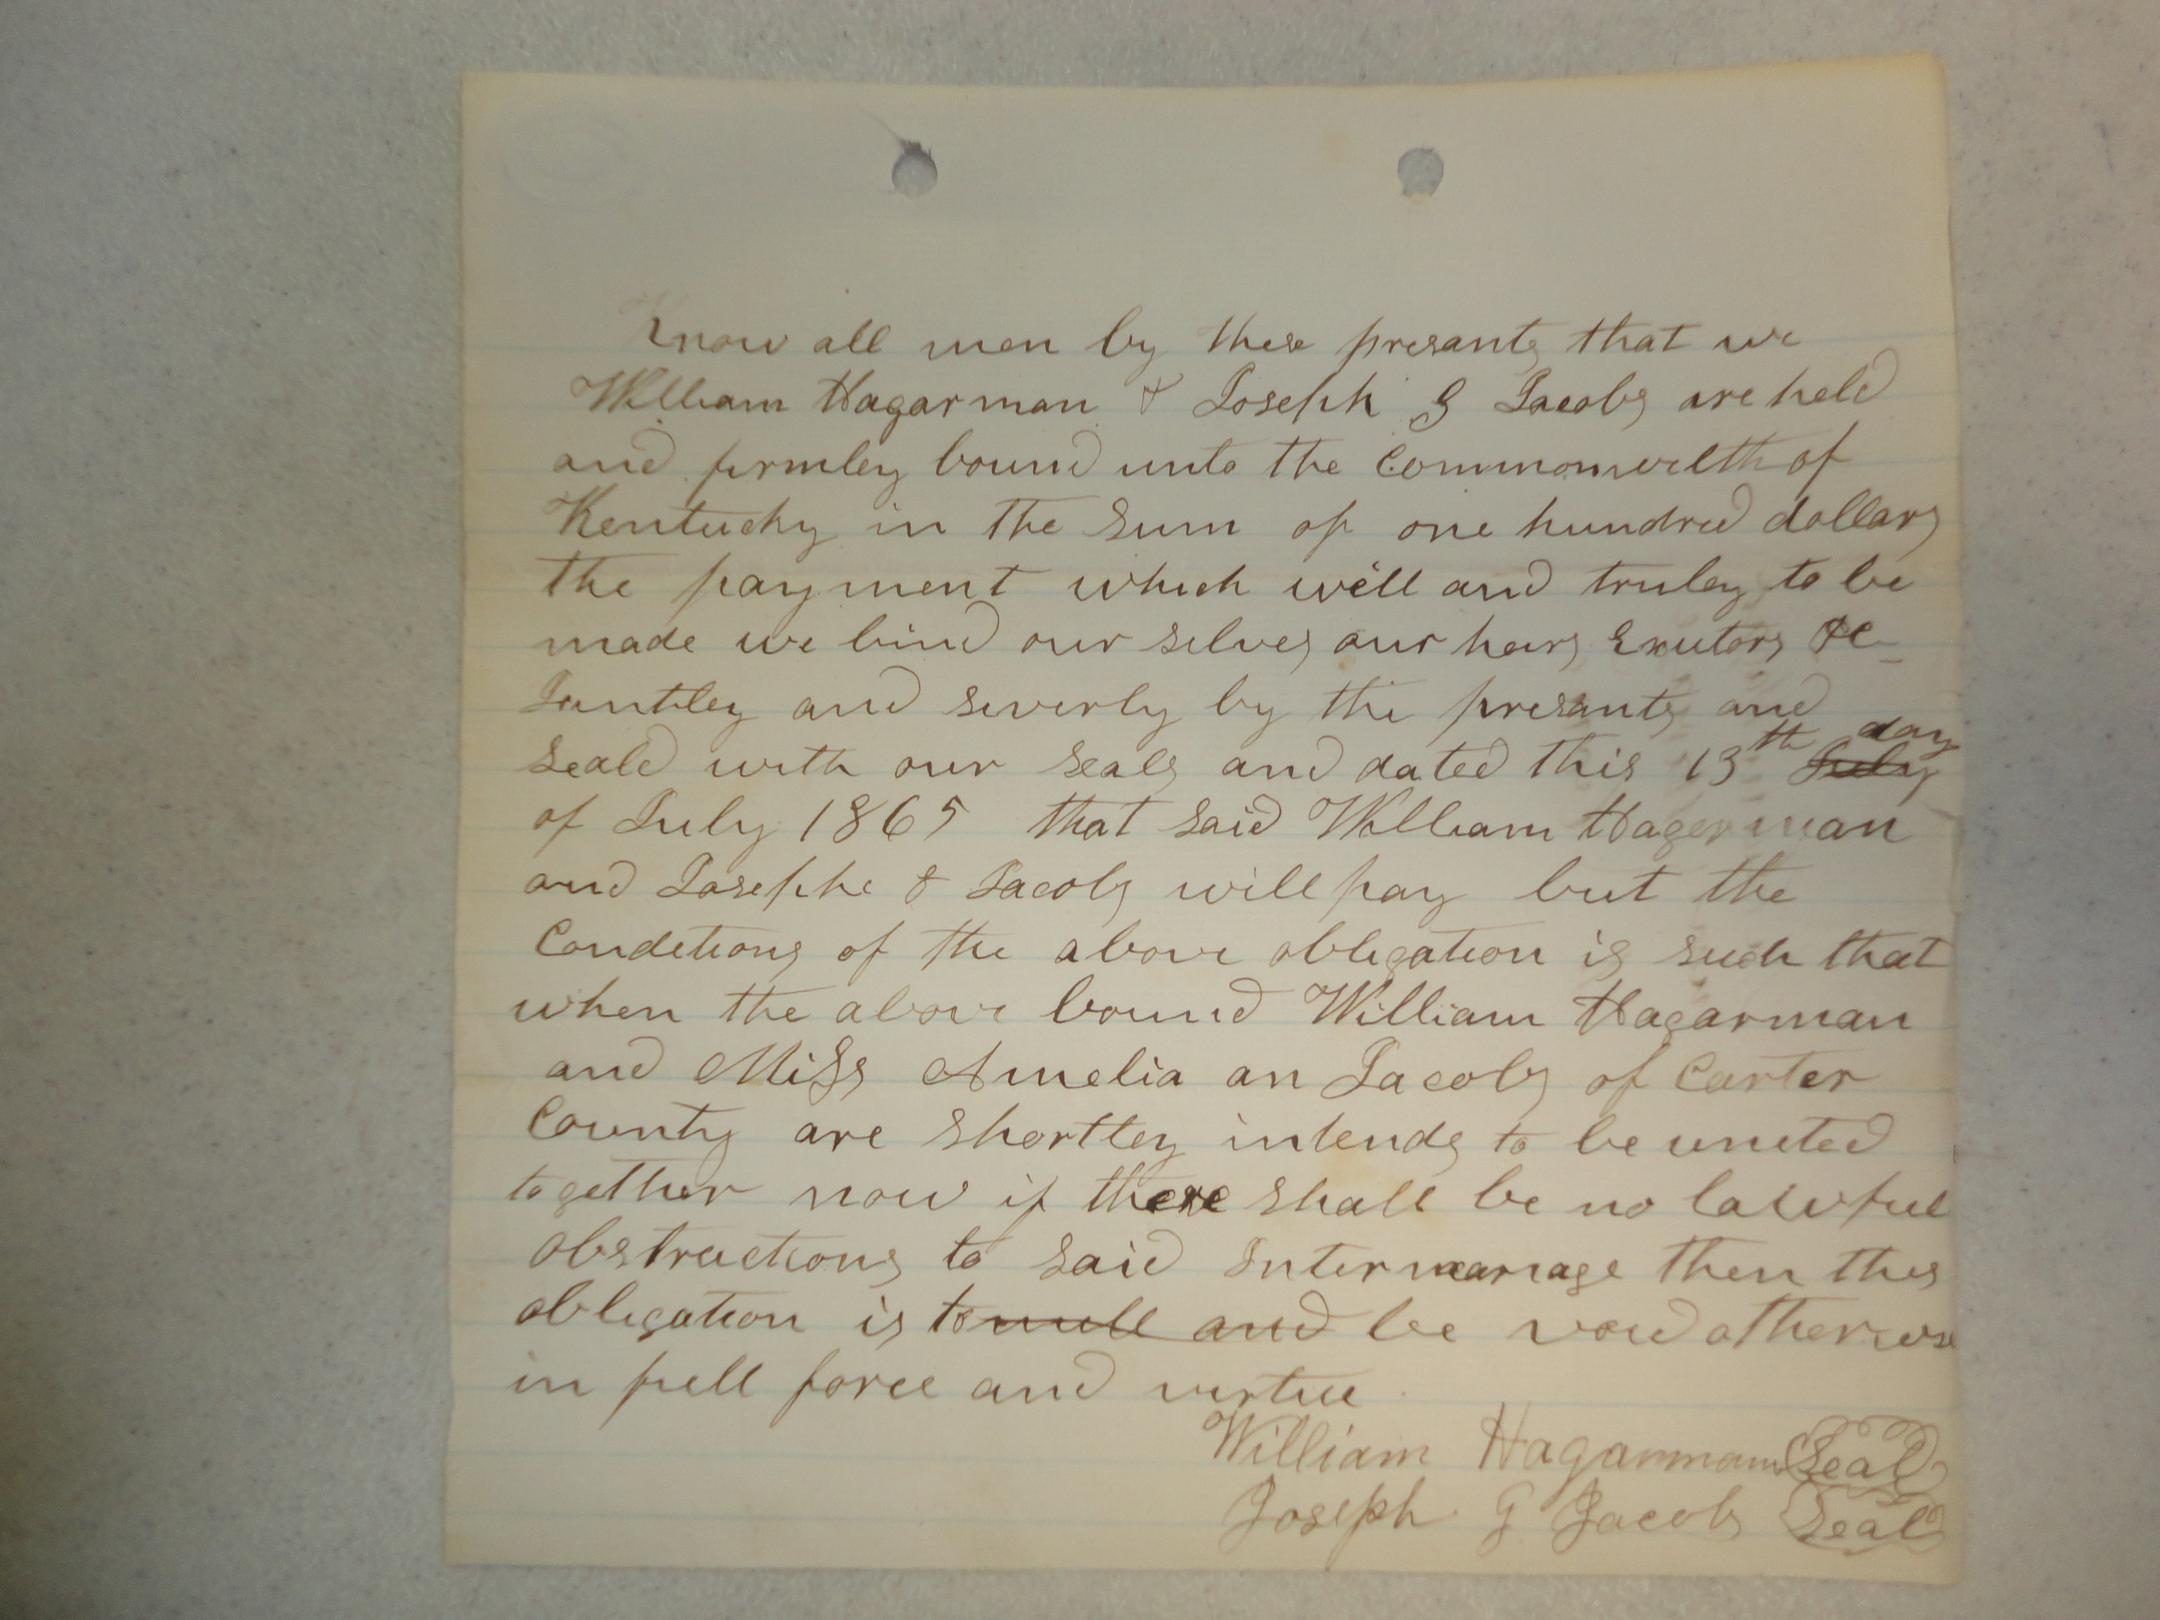 Know all men by these presants that we
William Hagarman & Joseph G Jacobs are held
and firmley bound unto the Commonwelth of
Kentucky in the Sum of one hundred dollars
the payment which well and truley to be
made we bind our selves our hears Exutors &c
Juntley and severly by the presants and
Seald with our seals and dated this 13th ~~July~~ day
of July 1865 that said William Hagerman
and Josephe & Jacobs will pay but the
Conditions of the above obligation is such that
when the above bound William Hagarman
and Miss Amelia an Jacobs of Carter
County are Shortley intends to be united
together now if there shall be no lawful
obstructions to said Intermarriage then this
obligation is to ~~null and~~ be void otherwise
in full force and virtue
William Hagarman Seal
Joseph G Jacobs Seal